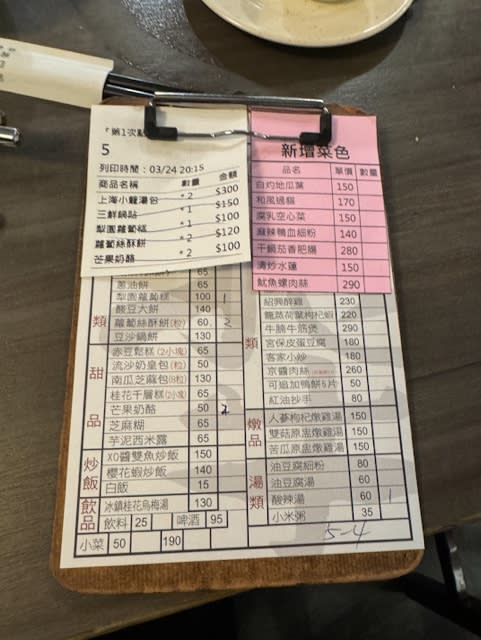 『第1次點
5
列印時間：03/24 20:15
商品名稱 數量 金額
上海小籠湯包 *2 $300
三鮮鍋貼 *1 $150
梨園蘿蔔糕 *1 $100
蘿蔔絲酥餅 *2 $120
芒果奶酪 *2 $100
新增菜色
品名 單價 數量
白灼地瓜葉 150
和風過貓 170
腐乳空心菜 150
麻辣鴨血細粉 140
干鍋茄香肥腸 280
清炒水蓮 150
魷魚螺肉絲 290
類
65
蔥油餅 65
梨園蘿蔔糕 100 1
酸豆大餅 140
蘿蔔絲酥餅(粒) 60 2
豆沙鍋餅 130
甜品
赤豆鬆糕(2小塊) 65
流沙奶皇包(粒) 50
南瓜芝麻包(8粒) 130
桂花千層糕(2小塊) 65
芒果奶酪 50 2
芝麻糊 65
芋泥西米露 65
炒飯
XO醬雙魚炒飯 150
櫻花蝦炒飯 140
白飯 15
飲品
冰鎮桂花烏梅湯 130
飲料 25 啤酒 95
小菜 50 190
類
紹興醉雞 230
籠蒸荷葉枸杞蝦 220
牛腩牛筋煲 290
宮保皮蛋豆腐 180
客家小炒 180
京醬肉絲 260
可追加鴨餅5片 50
紅油抄手 80
燉品
人蔘枸杞燉雞湯 150
雙菇原盅燉雞湯 150
苦瓜原盅燉雞湯 150
湯類
油豆腐細粉 80
油豆腐湯 60
酸辣湯 60 1
小米粥 35
5-4